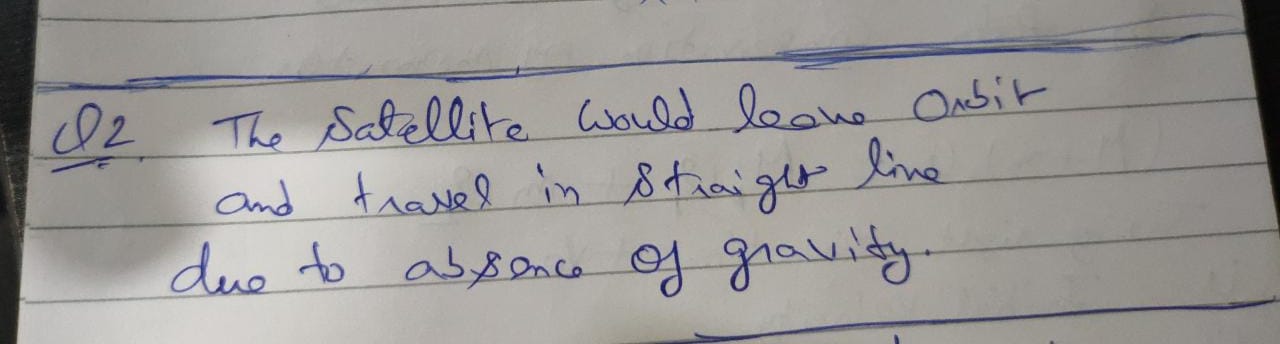 Q2. The Satellite would leave Orbit
and travel in straight line
due to absence of gravity.